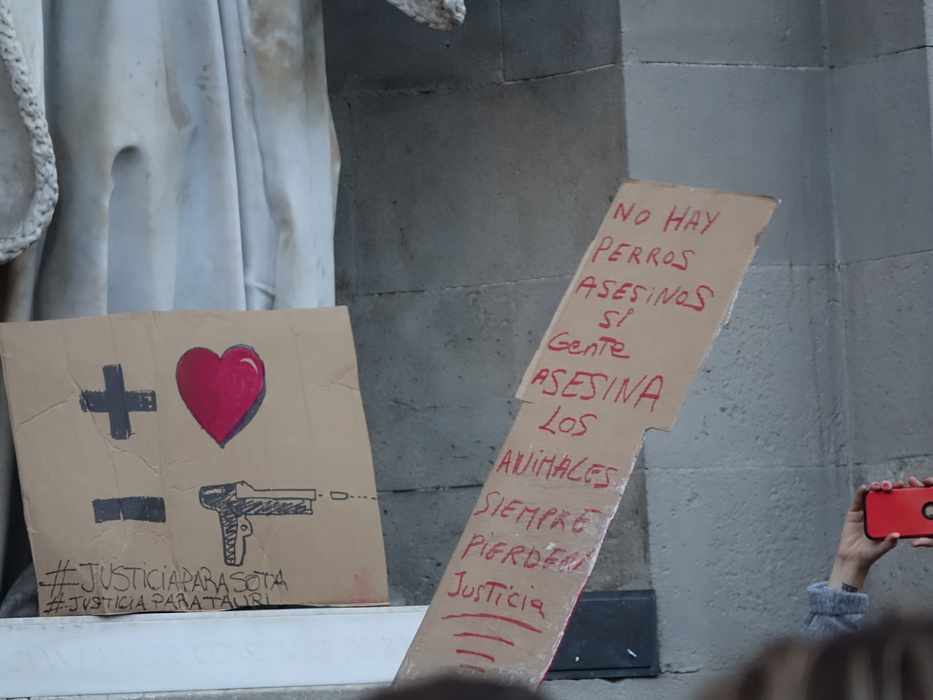 #JUSTICIAPARASOTA
#JUSTICIAPARATAURI
NO HAY
PERROS
ASESINOS
SI
Gente
ASESINA
LOS
ANIMALES
SIEMPRE
PIERDEN
Justicia